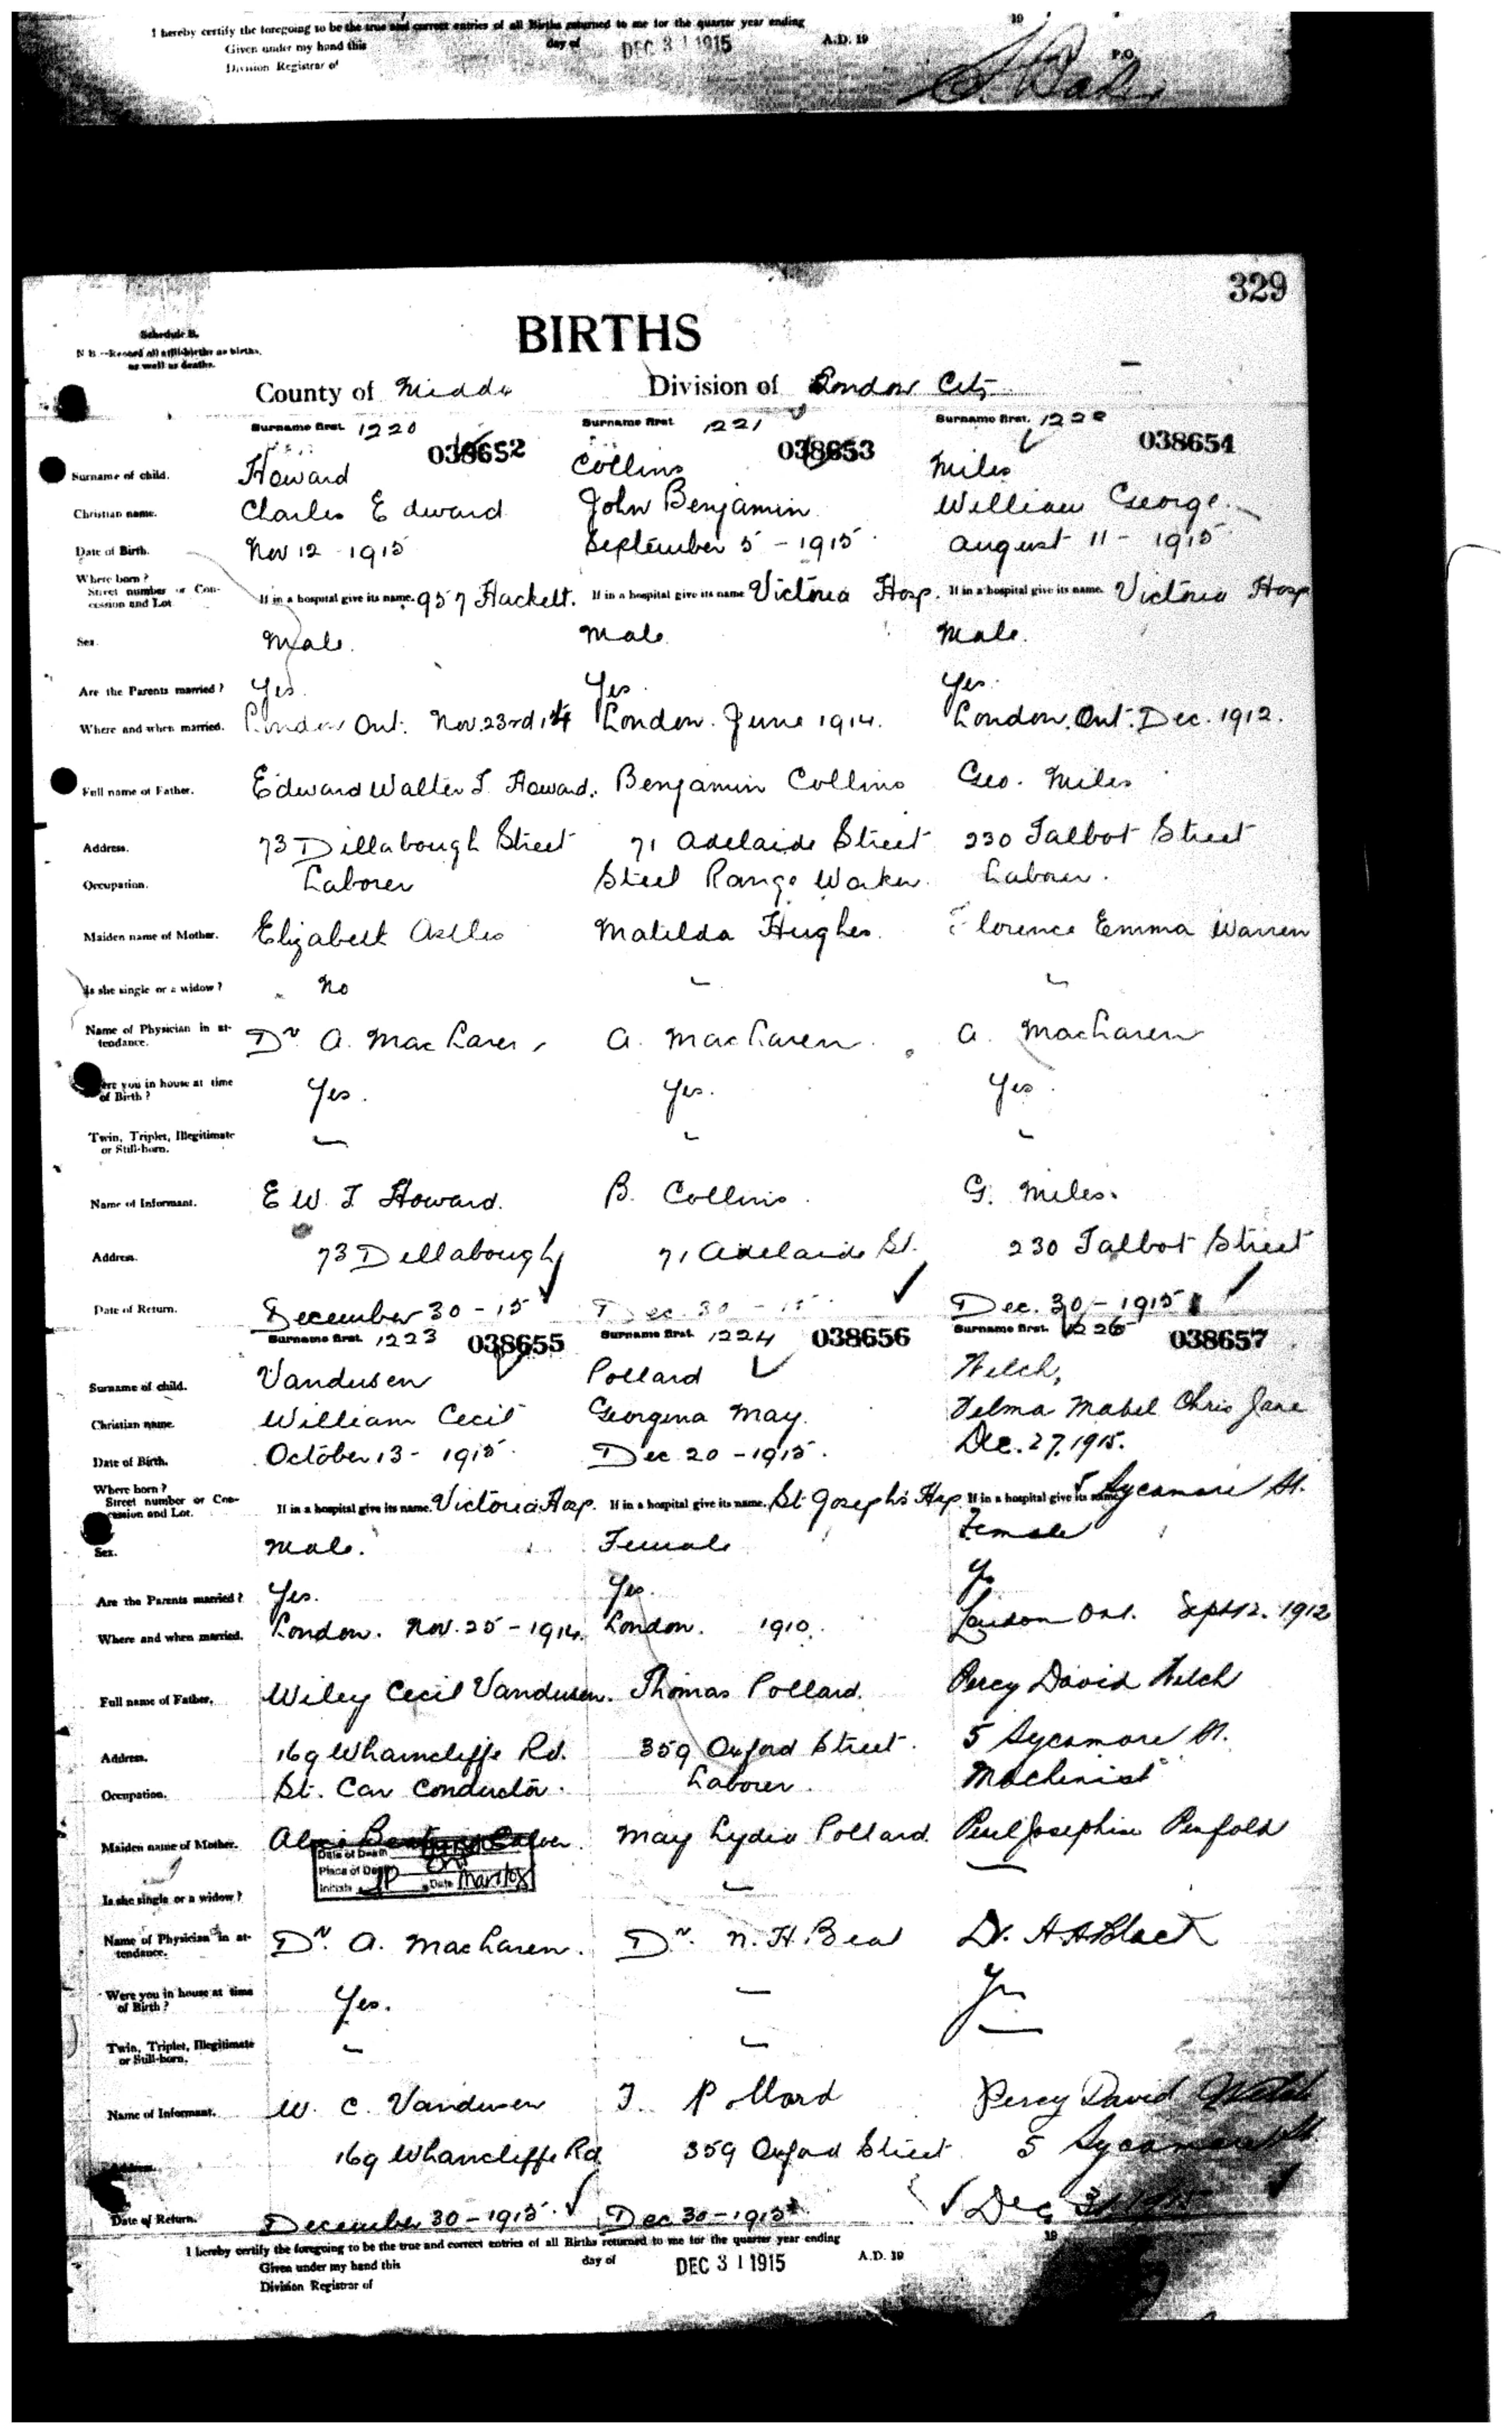 I hereby certify the foregoing to be the true and correct entries of all Births returned to me for the quarter year ending 19
Given under my hand this day of DEC 31 1915 A.D. 19 P.O.
Division Registrar of
329
Schedule B.
N B --Record all still-births as births, as well as deaths.
BIRTHS
County of Middx Division of London City
Surname first. 1220 Surname first 1221 Surname first. 1222
038652 038653 038654
Surname of child. Howard Collins Miles
Christian name. Charles Edward John Benjamin William George.
Date of Birth. Nov 12 - 1915 September 5 - 1915 August 11 - 1915
Where born?
Street number or Concession and Lot If in a hospital give its name. 957 Hackett. If in a hospital give its name Victoria Hosp. If in a hospital give its name. Victoria Hosp
Sex. Male. Male Male.
Are the Parents married? Yes. Yes. Yes.
Where and when married. London Ont. Nov. 23rd 14 London. June 1914. London, Ont. Dec. 1912.
Full name of Father. Edward Walter T. Howard. Benjamin Collins Geo. Miles
Address. 73 Dillabough Street 71 Adelaide Street 230 Talbot Street
Occupation. Laborer Steel Range Worker. Laborer.
Maiden name of Mother. Elizabeth Matilda Hughes. Florence Emma Warren
Is she single or a widow? No
Name of Physician in attendance. Dr A. MacLaren A. MacLaren A. MacLaren
Were you in house at time of Birth? Yes. Yes. Yes.
Twin, Triplet, Illegitimate or Still-born. – – –
Name of Informant. E W. T Howard. B. Collins. G. Miles.
Address. 73 Dillabough 71 Adelaide St. 230 Talbot Street
Date of Return. December 30 - 15 Dec. 30 - 15 Dec. 30 - 1915
Surname first. 1223 038655 Surname first. 1224 038656 Surname first. 1225 038657
Surname of child. Vandusen Pollard Welch,
Christian name. William Cecil Georgina May. Velma Mabel Chris Jane
Date of Birth. October 13 - 1915. Dec 20 - 1915. Dec. 27, 1915.
Where born?
Street number or Concession and Lot. If in a hospital give its name. Victoria Hosp. If in a hospital give its name. St. Joseph's Hsp If in a hospital give its name 5 Sycamore St.
Sex. Male. Female Female
Are the Parents married? Yes. Yes. Yes
Where and when married. London. Nov. 25 - 1914. London. 1910. London Ont. Sept 12. 1912
Full name of Father. Wiley Cecil Vandusen. Thomas Pollard. Percy David Welch
Address. 169 Wharncliffe Rd. 359 Oxford Street. 5 Sycamore St.
Occupation. St. Car Conductor. Laborer. Machinist
Maiden name of Mother. May Lydia Pollard. Perl Josephine Penfold
Date of Death
Place of Death
Initials JP Date
Is she single or a widow?
Name of Physician in attendance. Dr. A. MacLaren. Dr. N. H. Beal Dr. A A Black
Were you in house at time of Birth? Yes. – Yes
Twin, Triplet, Illegitimate or Still-born. – – –
Name of Informant. W. C. Vandusen T. Pollard Percy David Welch
Address. 169 Wharncliffe Rd. 359 Oxford Street 5 Sycamore St.
Date of Return. December 30 - 1915. Dec 30 - 1915 Dec 31 1915
I hereby certify the foregoing to be the true and correct entries of all Births returned to me for the quarter year ending 19
Given under my hand this day of DEC 31 1915 A.D. 19
Division Registrar of